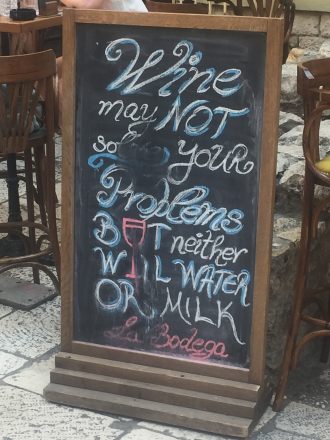 Wine
may NOT
so YOUR
Problems
BUT neither
WILL WATER
OR MILK
La Bodega